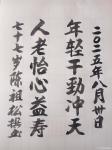 二〇二五年八月卅日
年轻干劲冲天
人老怡心益寿
七十七岁陈祖松撰书